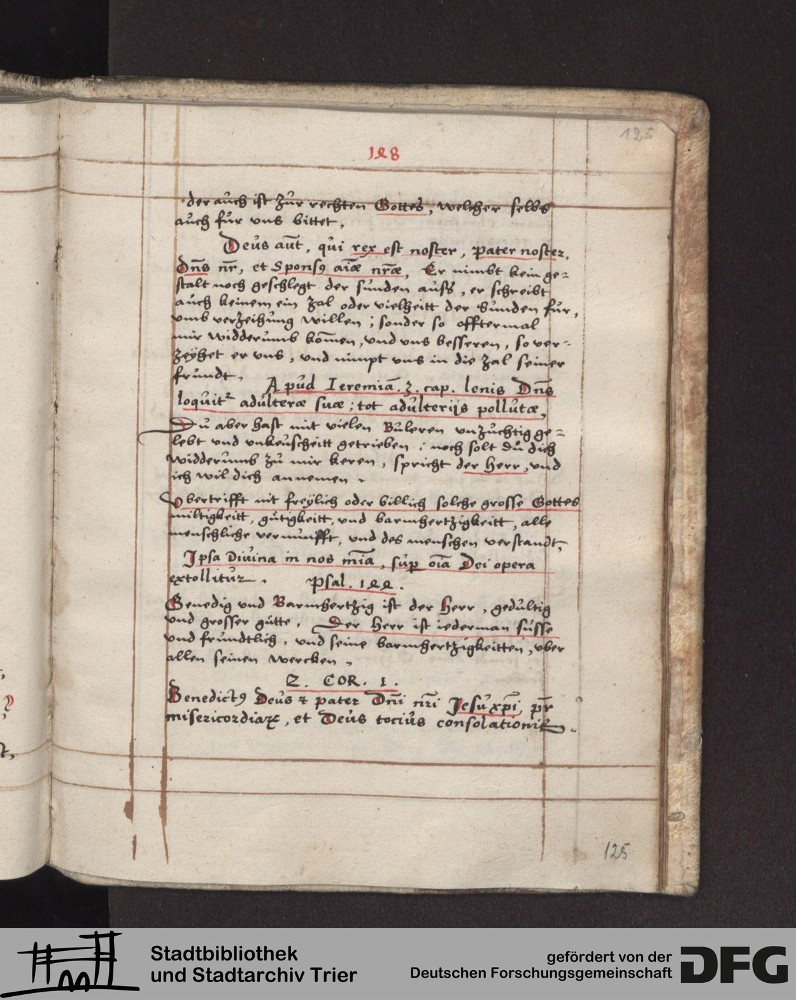 125
128
der auch ist zur rechten Gottes, welcher selbs
auch fur vns bittet.
Deus aūt, qui rex est noster, Pater noster,
Dn̄s nr̄, et Sponsꝯ aīæ nr̄æ, Er nimbt kein ge=
stalt noch geschlegt der sunden auss, er schreibt
auch keinem ein zal oder vielheitt der Sunden fur,
vmb verzeihung willen; sonder so offtermal
wir widderumb kōmen, vnd vns besseren, so ver-
zeyhet er vns, vnd nimpt vns in die zal seiner
frundt. Apud Ieremiā. 3. cap. lenis Dn̄s
loquit᷑ adulteræ suæ; tot adulterijs pollutæ,
Du aber hast mit vielen Buleren vnzuchtig ge=
lebt vnd vnkeuscheitt getrieben: noch solt du dich
widderumb zu mir keren, spricht der Herr, vnd
ich wil dich annemen.
Vbertrifft nit freylich oder billich solche grosse Gottes
miltigkeitt, gutigkeitt, vnd barmhertzigkeitt, alle
menschliche vernunfft, vnd des menschen verstandt,
Ipsa Diuina in nos mīa, sup oīa Dei opera
extollitur. Psal. 144.
Genedig vnd Barmhertzig ist der Herr, gedultig
vnd grosser gutte, Der Herr ist iederman susse
vnd frundtlich, vnd seine barmhertzigkeitten, vber
allen seinen wercken.
2. COR. 1.
Benedictꝯ Deus & pater Dn̄i nr̄i Jesu xp̄i, pr̄
misericordiaꝝ, et Deus tocius consolationis.
125
Stadtbibliothek
und Stadtarchiv Trier
gefördert von der
Deutschen Forschungsgemeinschaft
DFG